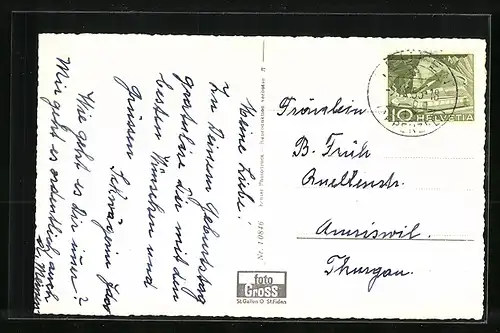 Meine Liebe!
Zu Deinem Geburtstag
gratuliere Dir mit den
besten Wünschen und
Grüssen
Schwägerin Idy
Wie geht es Dir immer?
Mir geht es ordentlich, auch
Nr. 10846
foto
GROSS
St.Gallen O St.Fiden
10 HELVETIA
Fräulein
B. Früh
Quellenstr.
Amriswil.
Thurgau.